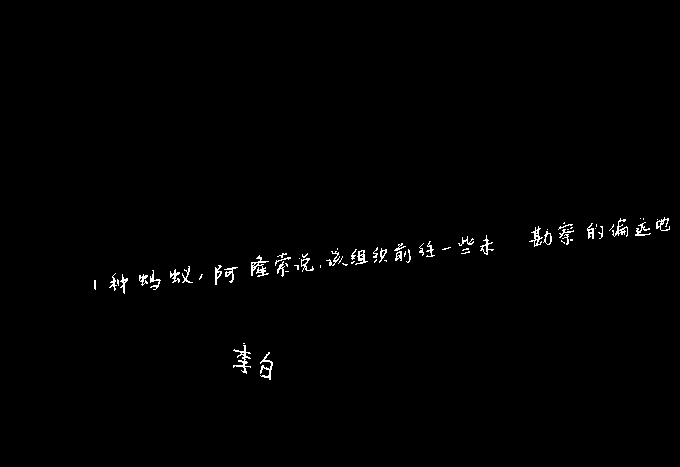 1种蚂蚁，阿隆索说，该组织前往一些未勘察的偏远地
李白